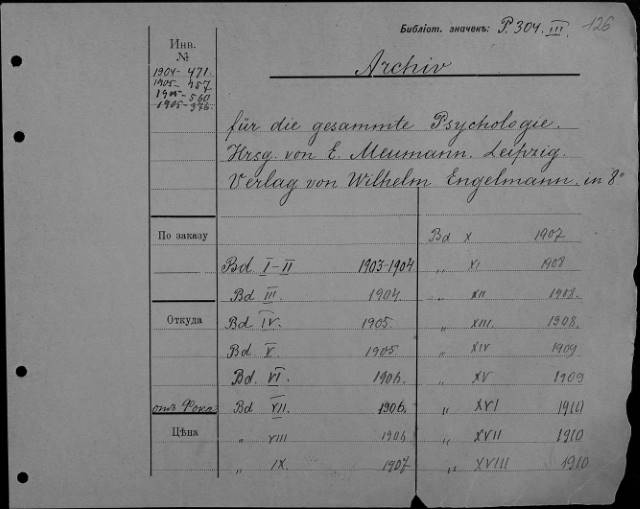 Библіот. значекъ: P. 304. III. 126
Инв.
№
1904 - 471.
1905 - 457
1905 - 560
1905 - 976.
Archiv
für die gesammte Psychologie.
Hrsg. von E. Meumann. Leipzig.
Verlag von Wilhelm Engelmann. in 8°
По заказу
Откуда
отъ Фока
Цѣна
Bd. I-II 1903-1904
Bd III. 1904.
Bd IV. 1905.
Bd V. 1905.
Bd. VI. 1906.
Bd VII. 1906.
„ VIII 1906
„ IX. 1907
Bd X 1907
„ XI 1908
„ XII 1908.
„ XIII. 1908.
„ XIV 1909
„ XV 1909
„ XVI 1910
„ XVII 1910
„ XVIII 1910